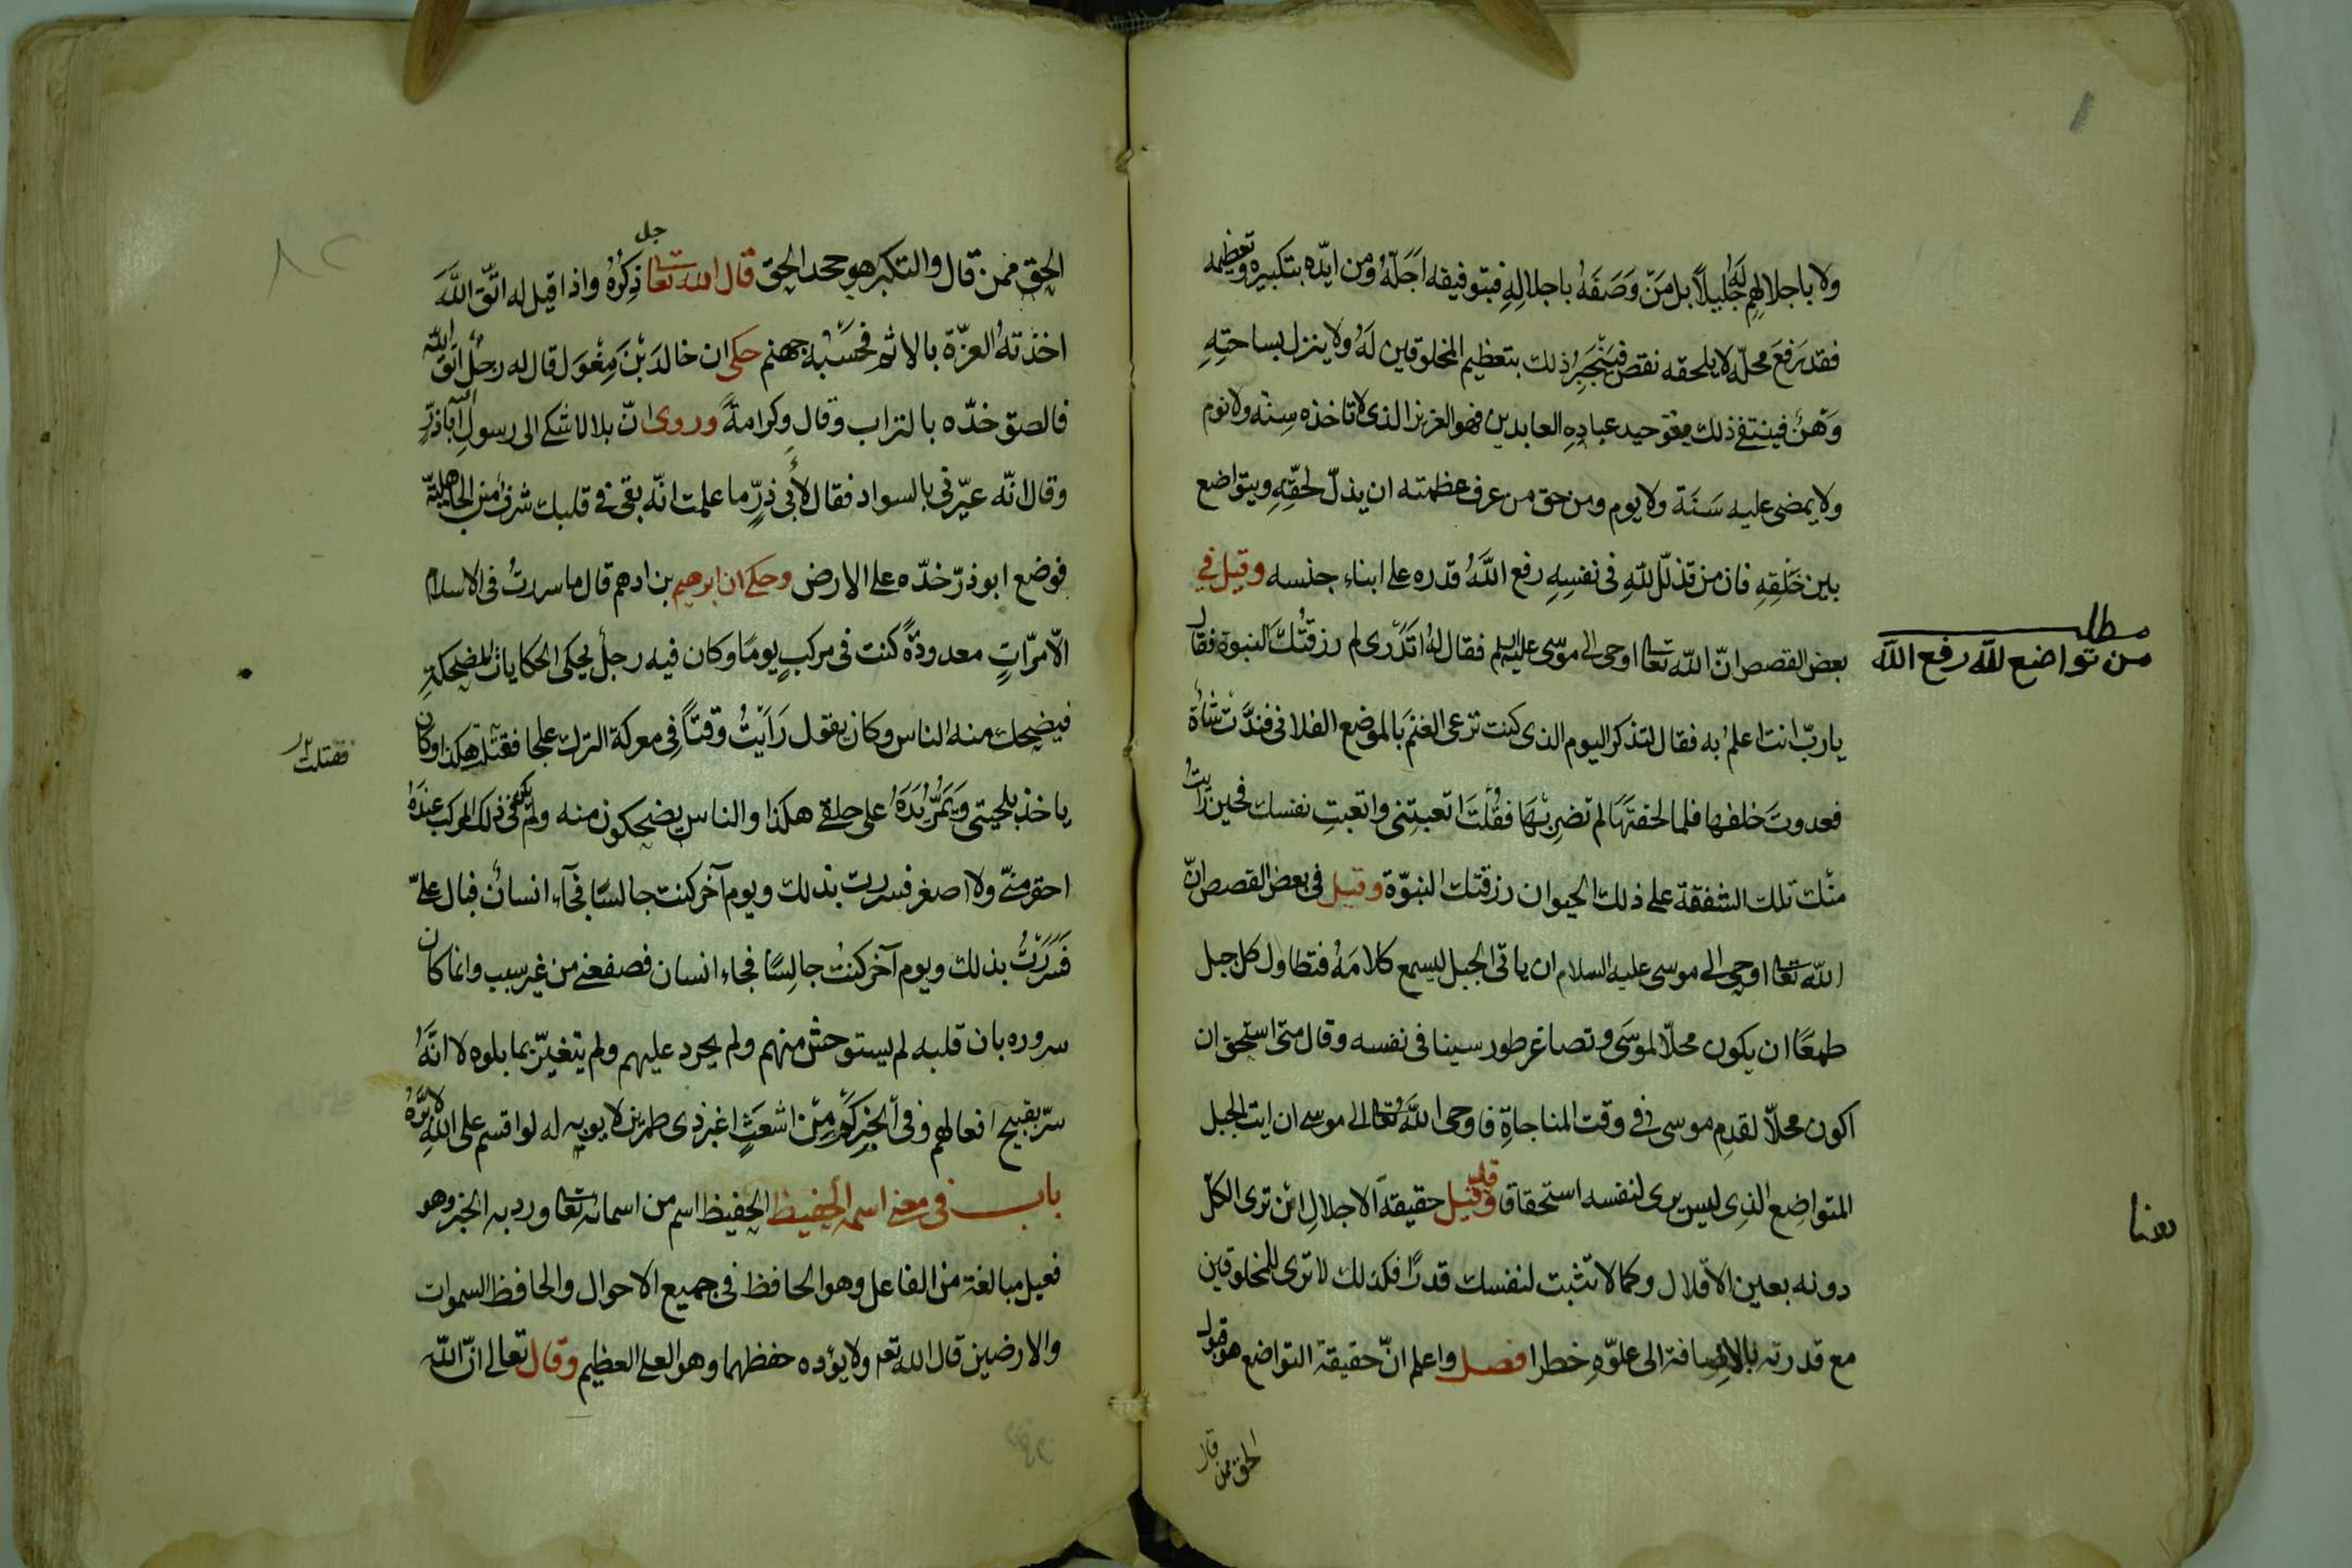 ولا باجلالهم له جليلاً بل مَنّ وَصَفَهُ باجلالِهِ فبتوفيقه اَجَلّهُ ومن ايّده بتكبيره وتعظيمه
فقد رَفعَ محلّه لا يلحقه نقص فيَنْجَبِرُ ذلك بتعظيم المخلوقين لَهُ ولا ينزل بساحتِهِ
وَهْنٌ فينتفے ذلك بتوحيد عبادِهِ العابدين فهو العزيز الذى لا تاخذه سِنَه ولا نوم
ولا يمضى عليه سَنَة ولا يوم ومن حق من عرف عظمته ان يذلّ لحقّهِ ويتواضع
بين خَلْقِهِ فان من تذلّل للّهِ فى نفسِهِ رفع اللّهُ قدره على ابناء جنسه وقيل في
بعض القصص انّ اللّه تعا اوحى الى موسى عليه السلم فقال لهُ اتَدْرى لم رزقتُكَ النبوة فقال
مطلب
من تواضع للّه رفع اللّه
ياربّ انت اعلمُ به فقال لتذكر اليوم الذى كنت ترعى الغنمَ بالموضع الفلانى فندَّت شاة
فعدوتَ خلفها فلما لحقتَهَا لم تضرِبْهَا فقُلْتَ اتعبتِنى واتعبتِ نفسك فحين رايتُ
منك تلك الشفقة على ذلك الحيوان رزقتك النبوّة وقيل فى بعض القصص انّ
اللّه تعا اوحى الى موسى عليه السلام ان ياتى الجبل ليسمع كلامَهُ فتطاول كل جبل
طمعًا ان يكون محلّا لموسَى وتصاغر طور سينا فى نفسه وقال متى استحق ان
اكون محلّا لقدمِ موسى فى وقت المناجاةِ فاوحى اللّهُ تعا الى موسى ان ايت الجبل
المتواضِع الذِى ليس يرى لنفسه استحقاقا وقيل حقيقة الاجلالِ ان ترى الكلّ
دونه بعين الاقلال وكما لا تثبت لنفسك قدرًا فكذلك لا ترى للمخلوقين
مع قدرته بالاِضافة الى علوّهِ خطرا فصل واعلم انّ حقيقة التواضع هو قبول
الحق ممن قال
الحق ممن قال والتكبر هو جحد الحق قال اللّه تعا جل ذِكرُهُ واذا قيل له اتّق اللّهَ
اخذتهُ العزّة بالاثم فحسْبُه جهنم حكى ان خالدَ بْنَ مِغْوَل قال له رجل اتّق اللّه
فالصق خدّه بالتراب وقال وكرامةً وروى انّ بلالا شكى الى رسول اللّه اباذرٍّ
وقال انّه عيّرنى بالسواد فقال لأبى ذرٍّ ما علمت انّه بقى فى قلبك شرفٌ من الجاهليّة
فوضع ابو ذرّ خدّه على الارض وحكى ان ابرهيم بن ادهم قال ما سررتُ فى الاسلام
الّا مرّاتٍ معدودةً كنت فى مركبٍ يومًا وكان فيه رجلٌ يحكى الحكايات المضحكةِ
فيضحك منه الناس وكان يقول رَاَيْتُ وقتاً فى معركة الترك علجا فقتلته هكذا وكان
ياخذ بلحيتى وَيَمُرُّ يَدَهُ على حلقے هكذا والناس يضحكون منه ولم يكن فى ذلك المركب عِندَهُ
احقر منّى ولا اصغر فسررت بذلك ويوم آخر كنت جالسًا فجآء انسان فبال علىّ
فَسُرِرْتُ بذلك ويوم آخر كنتُ جالِسًا فجاء انسان فصفعنى من غير سبب وانما كان
سروره بان قلبه لم يستوحش منهم ولم يحرد عليهم ولم يتغيّر بما بلوه لا انّهُ
سرّ بقبيح افعالهم وفى الخبر كَمْ مِنْ اشعَثٍ اغبر ذى طمرين لا يوبه له لو اقسم على اللّهِ لابَرَّهُ
باب فى معنى اسمه الحفيظ الحفيظ اسم من اسمائه تعا ورد به الخبر وهو
فعيل مبالغة من الفاعل وهو الحافظ فى جميع الاحوال والحافظ السموات
والارضين قال اللّه تعـ ولا يؤده حفظهما وهو العلى العظيم وقال تعالى انّ اللّه